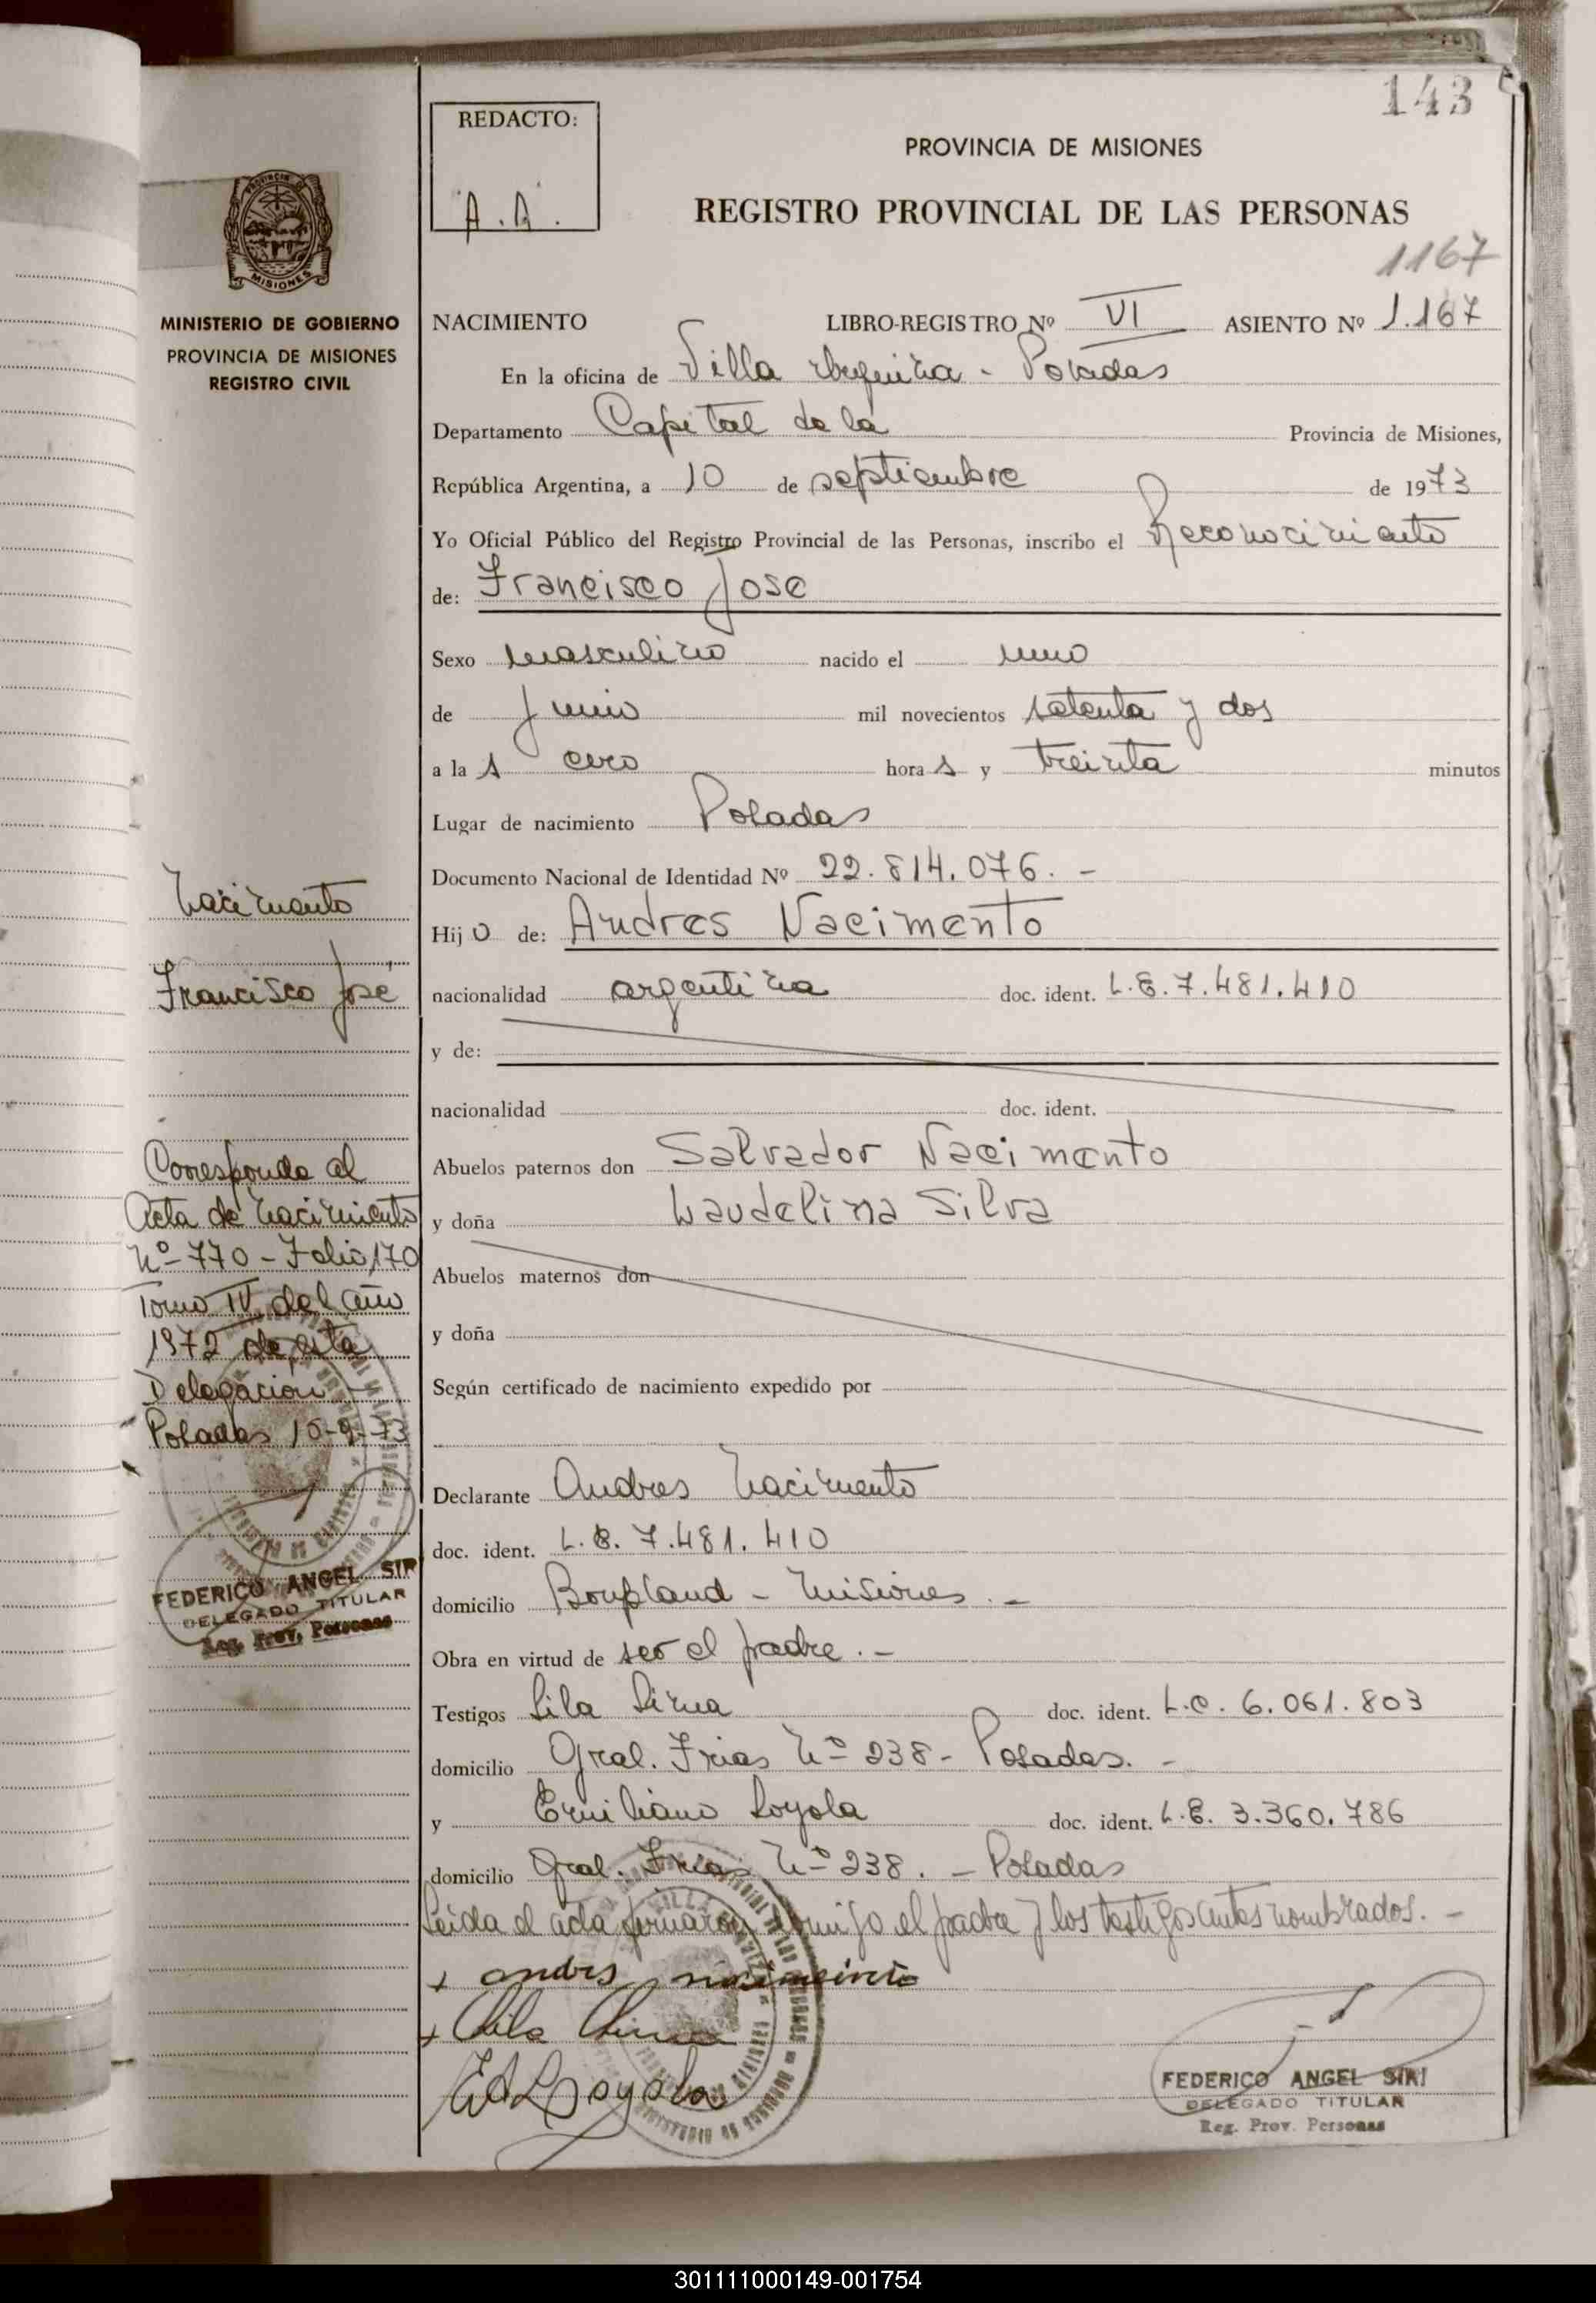 143
REDACTO:
A.A.
PROVINCIA DE MISIONES
REGISTRO PROVINCIAL DE LAS PERSONAS
1167
PROVINCIA
MISIONES
MINISTERIO DE GOBIERNO
PROVINCIA DE MISIONES
REGISTRO CIVIL
NACIMIENTO LIBRO-REGISTRO Nº VI ASIENTO Nº 1.167
En la oficina de Villa Urquiza - Posadas
Departamento Capital de la Provincia de Misiones,
República Argentina, a 10 de septiembre de 1973
Yo Oficial Público del Registro Provincial de las Personas, inscribo el Reconocimiento
de: Francisco Jose
Sexo masculino nacido el uno
de Junio mil novecientos setenta y dos
a la s cero hora s y treinta minutos
Lugar de nacimiento Posadas
Documento Nacional de Identidad Nº 22.814.076. -
Hij o de: Andres Nacimento
nacionalidad argentina doc. ident. L.E. 7.481.410
y de:
nacionalidad doc. ident.
Abuelos paternos don Salvador Nacimento
y doña Laudelina Silva
Abuelos maternos don
y doña
Según certificado de nacimiento expedido por
Declarante Andres Nacimento
doc. ident. L.E. 7.481.410
domicilio Bonpland - Misiones. -
Obra en virtud de ser el padre. -
Testigos Lila doc. ident. L.C. 6.061.803
domicilio Gral. Frias Nº 238 - Posadas. -
y Emiliano Loyola doc. ident. L.E. 3.360.786
domicilio Gral. Frias Nº 238. - Posadas
Leida el acta firmaron conmigo el padre y los testigos antes nombrados. -
+ andres
+
E A Loyola
FEDERICO ANGEL SIRI
DELEGADO TITULAR
Reg. Prov. Personas
Nacimento
Francisco José
Corresponde al
Acta de Nacimiento
Nº 770 - Folio 170
Tomo IV del año
1972 de esta
Delegación -
Posadas 10-9-73
FEDERICO ANGEL SIRI
DELEGADO TITULAR
Reg. Prov. Personas
301111000149-001754